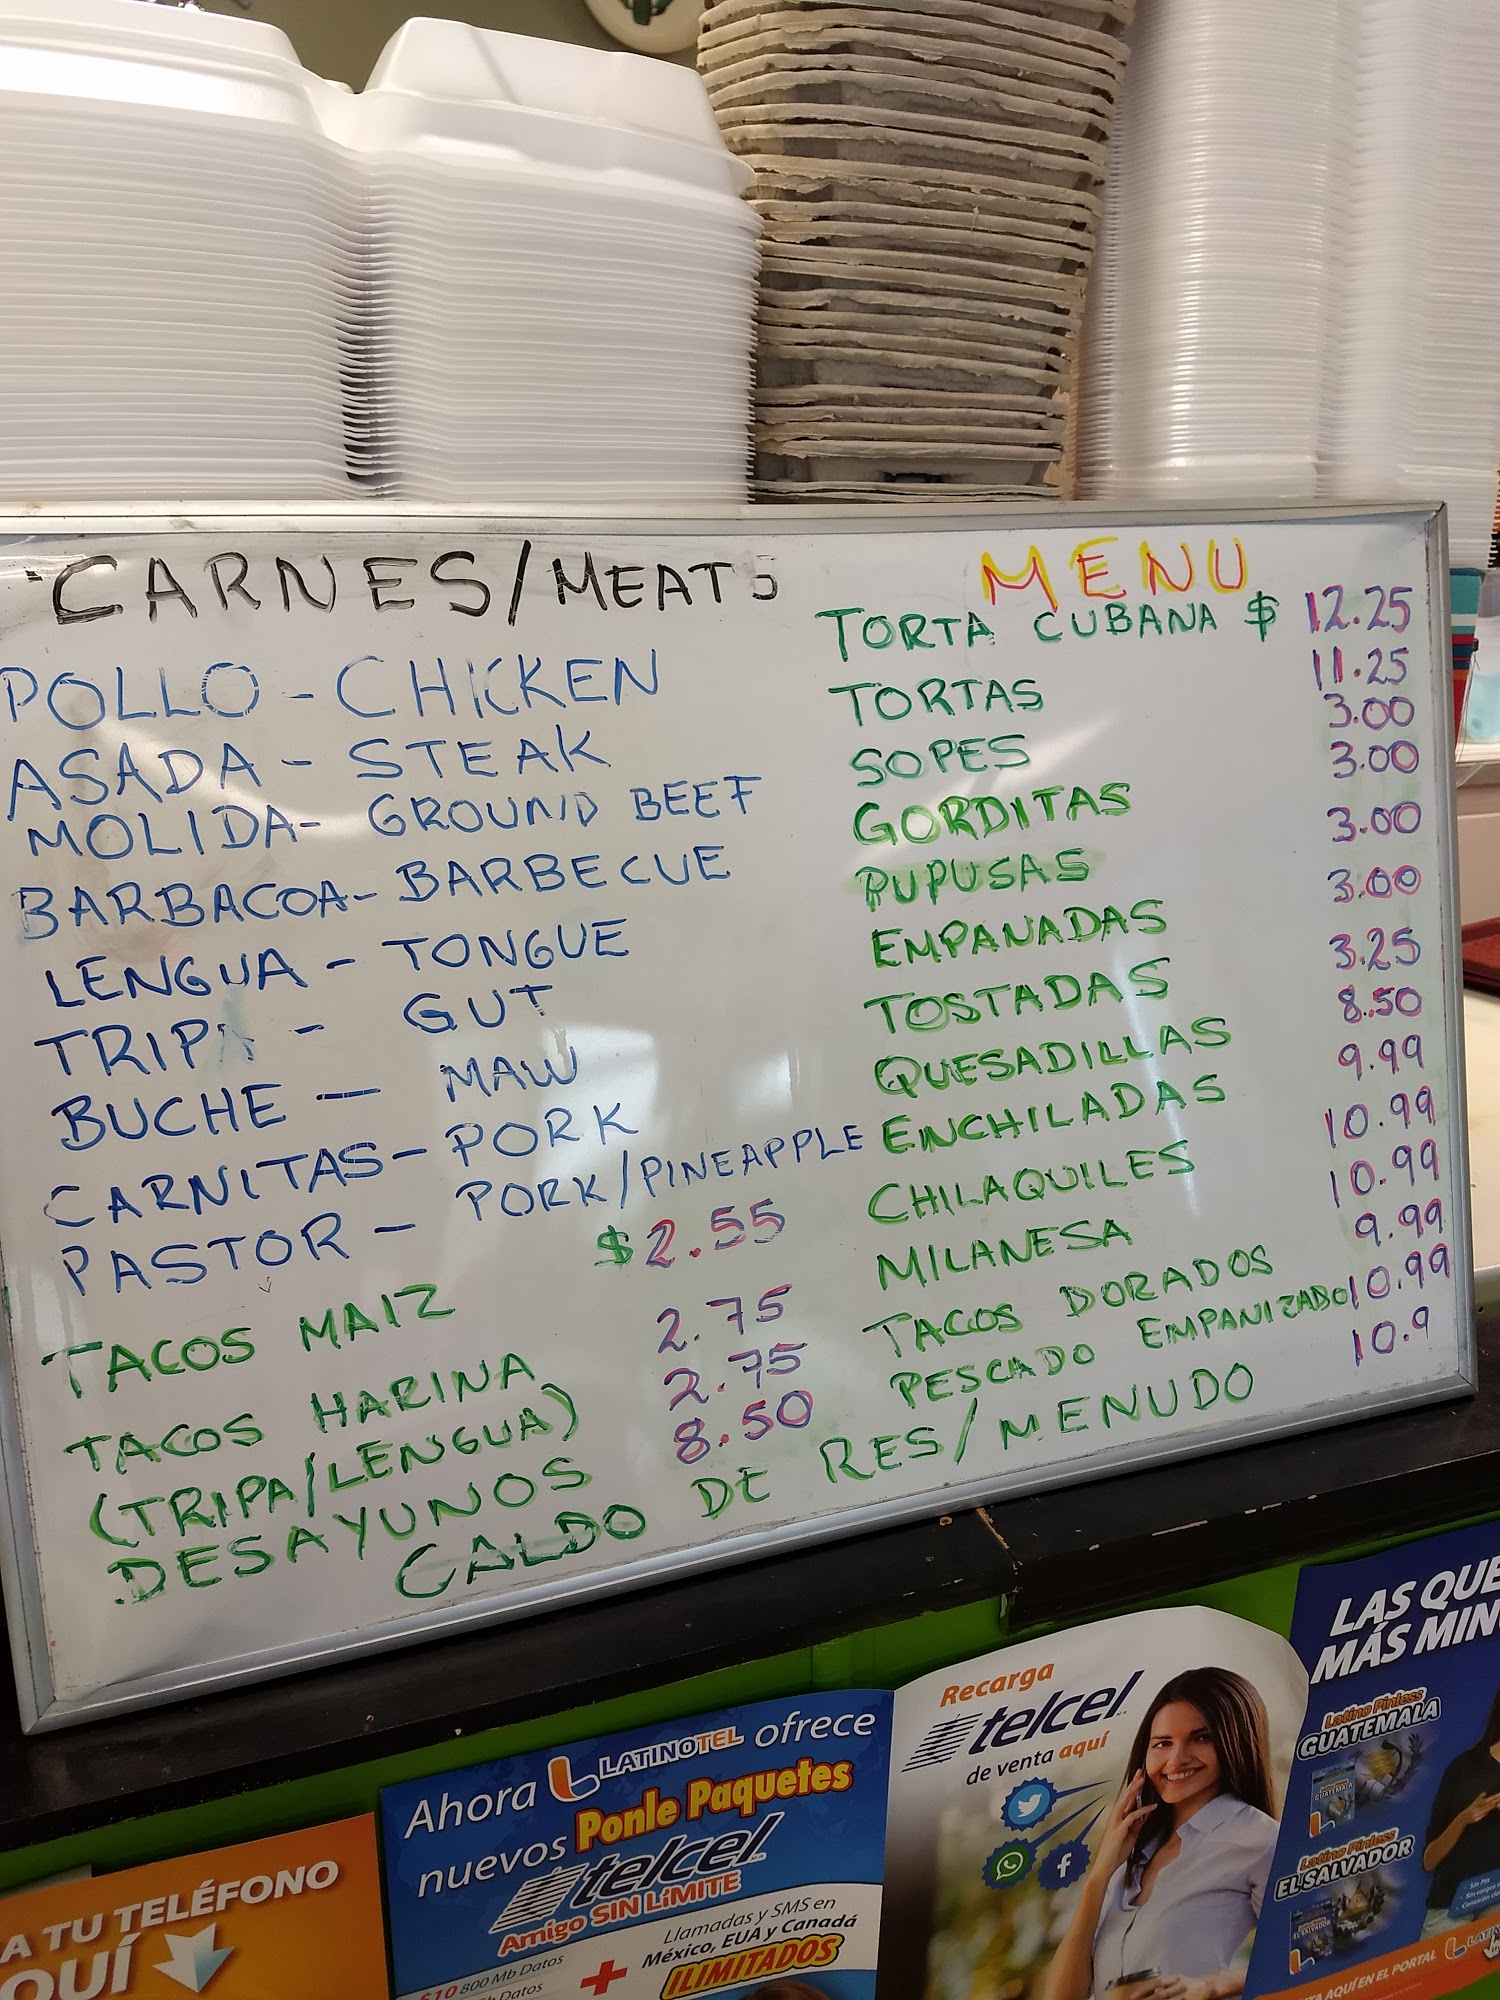 CARNES/MEATS
POLLO - CHICKEN
ASADA - STEAK
MOLIDA - GROUND BEEF
BARBACOA - BARBECUE
LENGUA - TONGUE
TRIPA - GUT
BUCHE - MAW
CARNITAS - PORK
PASTOR - PORK/PINEAPPLE
TACOS MAIZ $2.55
TACOS HARINA 2.75
(TRIPA/LENGUA) 2.75
DESAYUNOS 8.50
MENU
TORTA CUBANA $ 12.25
TORTAS 11.25
SOPES 3.00
GORDITAS 3.00
PUPUSAS 3.00
EMPANADAS 3.00
TOSTADAS 3.25
QUESADILLAS 8.50
ENCHILADAS 9.99
CHILAQUILES 10.99
MILANESA 10.99
TACOS DORADOS 9.99
PESCADO EMPANIZADO 10.99
CALDO DE RES/MENUDO 10.9
A TU TELÉFONO
QUÍ
Ahora LATINOTEL ofrece
nuevos Ponle Paquetes
telcel
Amigo SIN LÍMITE
$10 800 Mb Datos
Datos
+
Llamadas y SMS en
México, EUA y Canadá
ILIMITADOS
Recarga
telcel
de venta aquí
LAS QUE
MÁS MIN
Latino Pinless
GUATEMALA
Latino Pinless
EL SALVADOR
Sin Pin
TA AQUÍ EN EL PORTAL